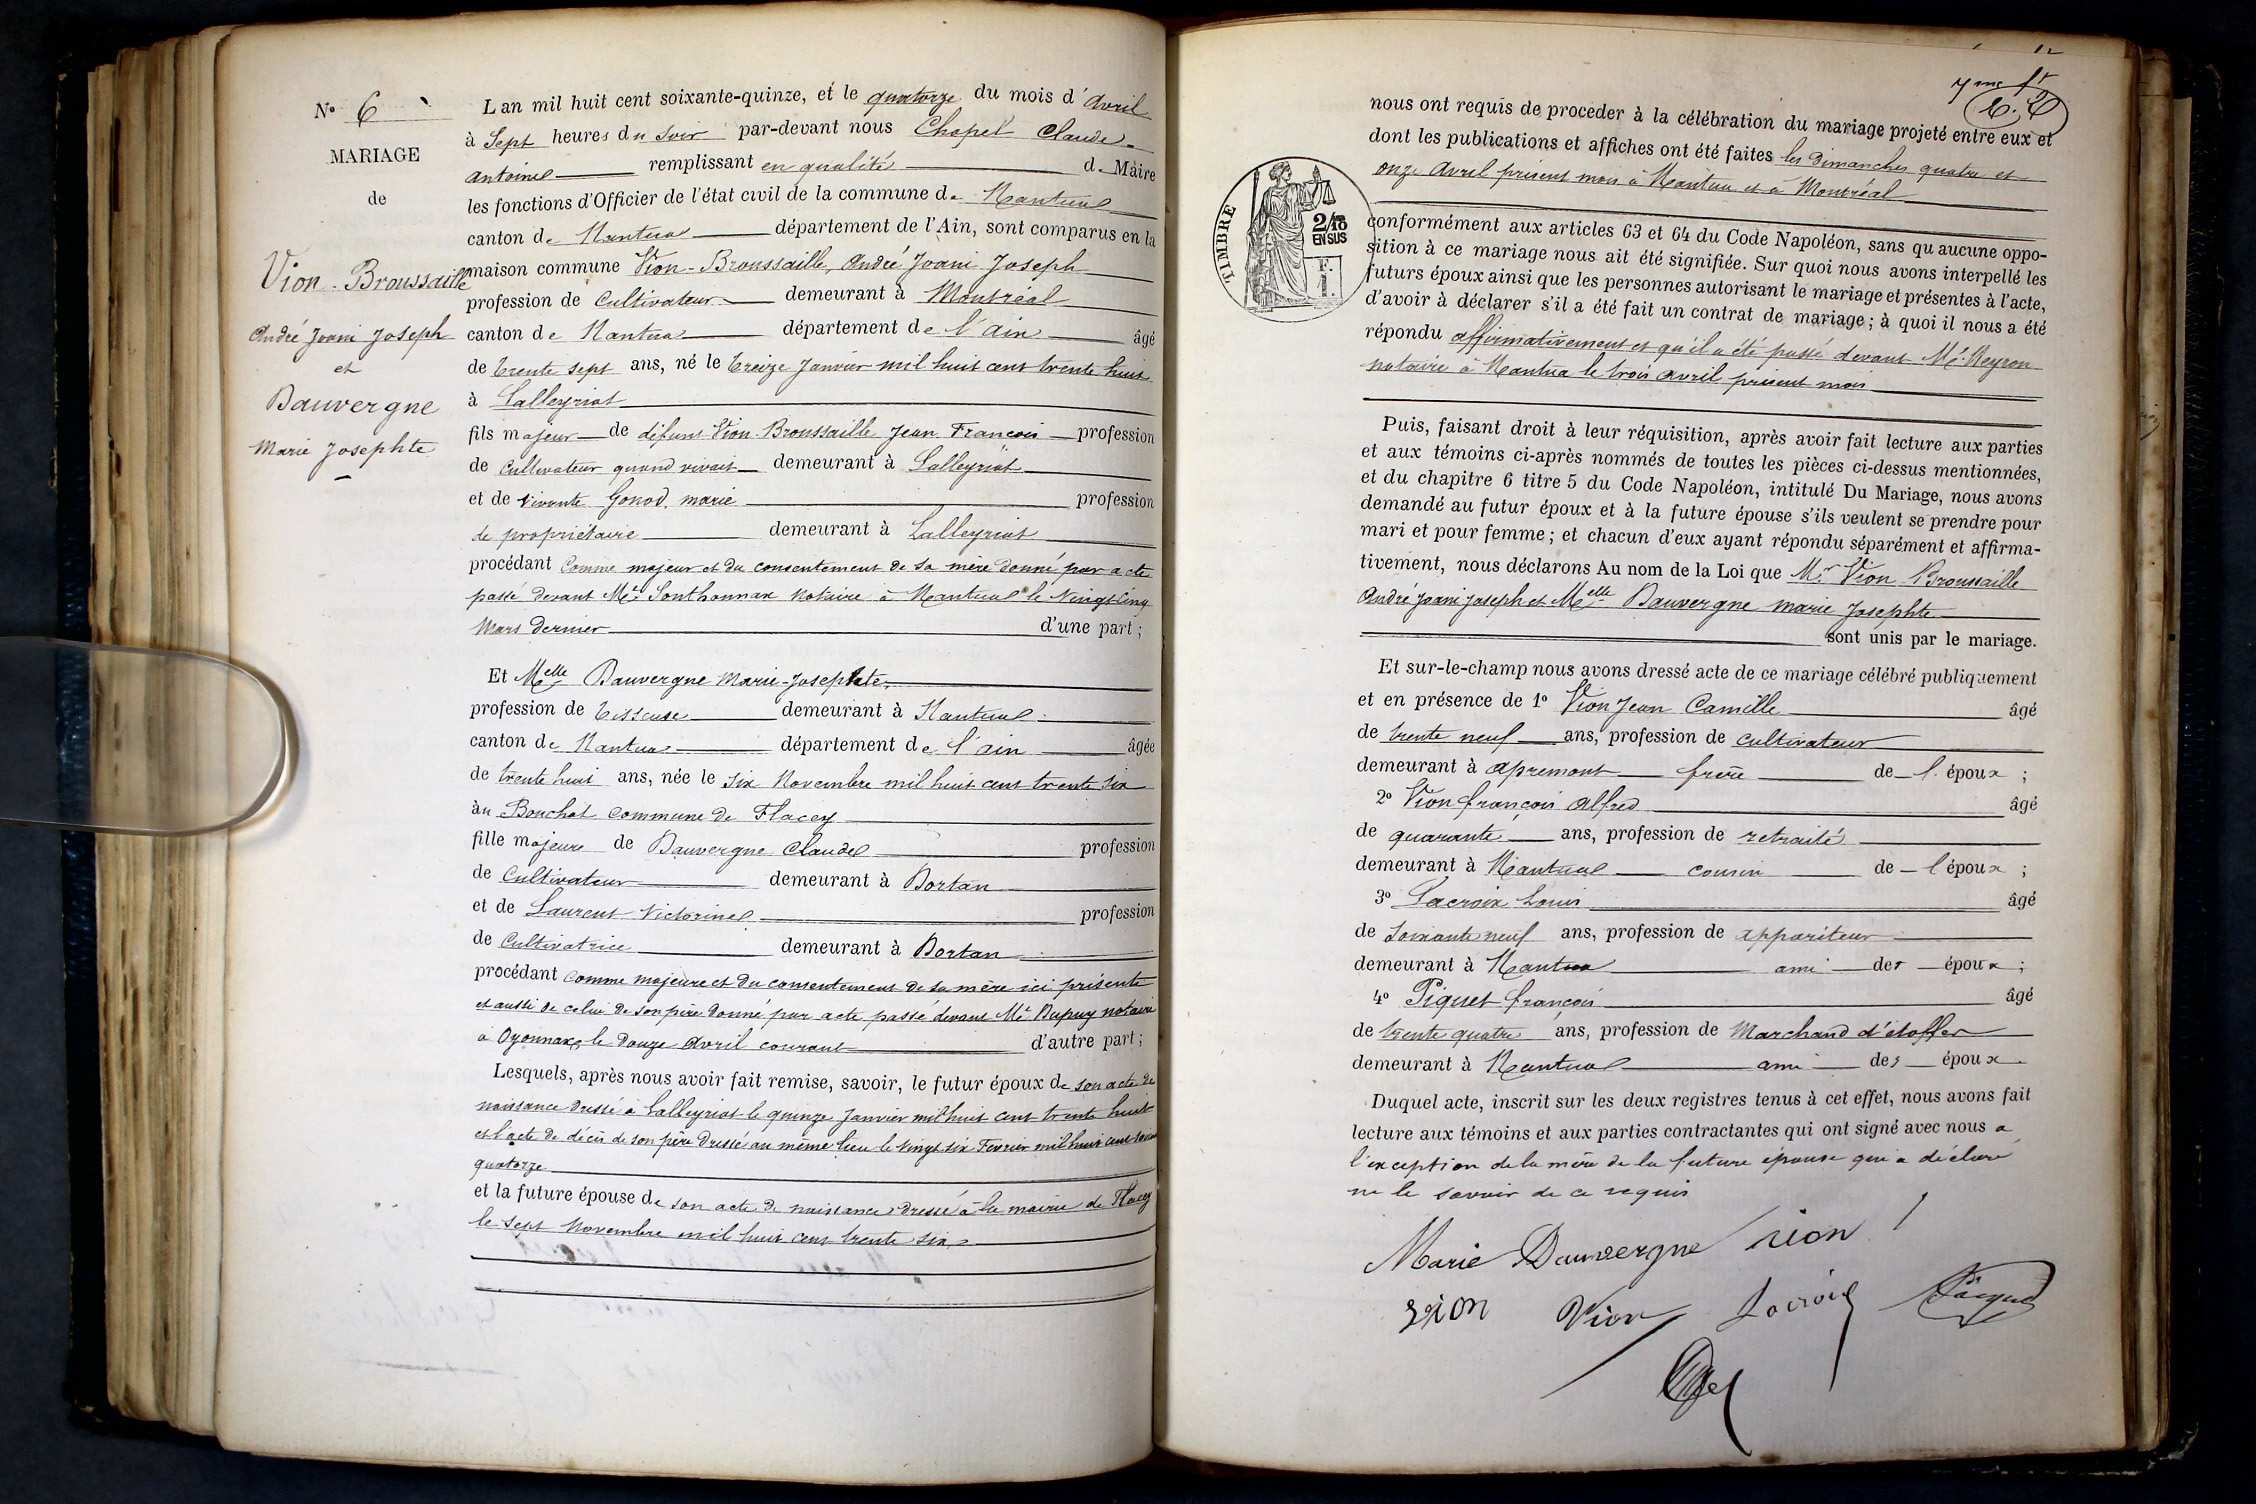 N° 6
MARIAGE
de
Vion-Broussaille
André Joani Joseph
et
Dauvergne
Marie Josephte
L an mil huit cent soixante-quinze, et le quatorze du mois d' avril
à Sept heures du soir par-devant nous Chapel Claude-
antoine remplissant en qualité de Maire
les fonctions d'Officier de l'état civil de la commune de Nantua
canton de Nantua département de l'Ain, sont comparus en la
maison commune Vion-Broussaille, André Joani Joseph
profession de Cultivateur demeurant à Montréal
canton de Nantua département de l'ain âgé
de trente sept ans, né le treize Janvier mil huit cent trente huit
à Lalleyriat
fils majeur de défunt Vion-Broussaille Jean François profession
de Cultivateur quand vivait demeurant à Lalleyriat
et de vivante Gonod marie profession
de propriétaire demeurant à Lalleyriat
procédant Comme majeur et du consentement de sa mère donné par acte
passé devant Me Sonthonnax Notaire à Nantua le Vingt cinq
Mars dernier d'une part ;
Et Melle Dauvergne Marie-Josephte
profession de tisseuse demeurant à Nantua
canton de Nantua département de l'ain âgée
de trente huit ans, née le six Novembre mil huit cent trente six
au Bouchat commune de Flacey
fille majeure de Dauvergne Claude profession
de Cultivateur demeurant à Dortan
et de Laurent Victorine profession
de Cultivatrice demeurant à Dortan
procédant comme majeure et du consentement de sa mère ici présente
et aussi de celui de son père donné par acte passé devant Me Dupuy notaire
à Oyonnax, le douze avril courant d'autre part ;
Lesquels, après nous avoir fait remise, savoir, le futur époux de son acte de
naissance dressé à Lalleyriat le quinze Janvier mil huit cent trente huit
et l'acte de décès de son père dressé au même lieu le Vingt six Fevrier mil huit cent
quatorze
et la future épouse de son acte de naissance dressé à la mairie de Flacey
le sept Novembre mil huit cent trente six
7me
nous ont requis de procéder à la célébration du mariage projeté entre eux et
dont les publications et affiches ont été faites les dimanches quatre et
onze Avril présent mois à Nantua et à Montréal
TIMBRE
2/10
EN SUS
F.
1
conformément aux articles 63 et 64 du Code Napoléon, sans qu aucune oppo-
sition à ce mariage nous ait été signifiée. Sur quoi nous avons interpellé les
futurs époux ainsi que les personnes autorisant le mariage et présentes à l'acte,
d'avoir à déclarer s'il a été fait un contrat de mariage ; à quoi il nous a été
répondu affirmativement et qu'il a été passé devant Me Reyron
notaire à Nantua le trois avril présent mois
Puis, faisant droit à leur réquisition, après avoir fait lecture aux parties
et aux témoins ci-après nommés de toutes les pièces ci-dessus mentionnées,
et du chapitre 6 titre 5 du Code Napoléon, intitulé Du Mariage, nous avons
demandé au futur époux et à la future épouse s'ils veulent se prendre pour
mari et pour femme ; et chacun d'eux ayant répondu séparément et affirma-
tivement, nous déclarons Au nom de la Loi que Mr Vion-Broussaille
André Joani Joseph et Melle Dauvergne marie Josephte
sont unis par le mariage.
Et sur-le-champ nous avons dressé acte de ce mariage célébré publiquement
et en présence de 1° Vion Jean Camille âgé
de trente neuf ans, profession de cultivateur
demeurant à apremont frère de l' époux ;
2° Vion françois alfred âgé
de quarante ans, profession de retraité
demeurant à Nantua cousin de l'époux ;
3° Lacroix Louis âgé
de soixante neuf ans, profession de appariteur
demeurant à Nantua ami des époux ;
4° Piquet françois âgé
de trente quatre ans, profession de Marchand d'étoffes
demeurant à Nantua ami des époux
Duquel acte, inscrit sur les deux registres tenus à cet effet, nous avons fait
lecture aux témoins et aux parties contractantes qui ont signé avec nous a
l'exception de la mère de la future épouse qui a déclaré
ne le savoir de ce requis
Marie Dauvergne vion
vion Vion Lacroix Piquet